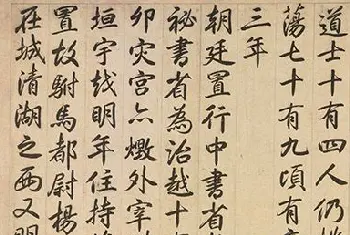 道士十有四人仍
蕩七十有九頃有
三年
朝廷置行中書省
秘書省為治越十
卯灾宫亦燬外宰
垣宇越明年住持
置故駙馬都尉楊
在城清湖之西又明